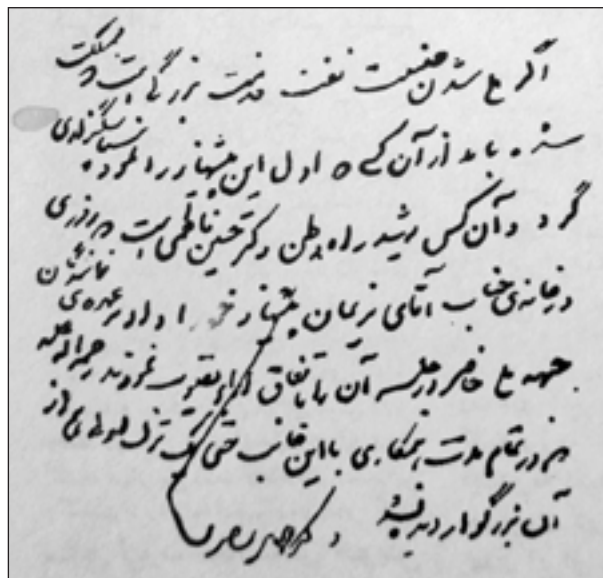 اگر ملی شدن صنعت نفت خدمت بزرگی است بمملکت
شده باید از آن کسی که اول این پیشنهاد را نمود سپاسگزاری
کرد و آن کس شهید راه وطن دکتر حسین فاطمی است که روزی
در خانه‌ی جناب آقای نریمان پیشنهاد خود را داد و عده‌ی نمایندگان
جبهه ملی حاضر در جلسه آن را باتفاق آراء تصویب نمودند رحمة الله علیه
که در تمام مدت همکاری با این جانب حتی یک ترک اولی هم از
آن بزرگوار دیده نشد دکتر محمد مصدق